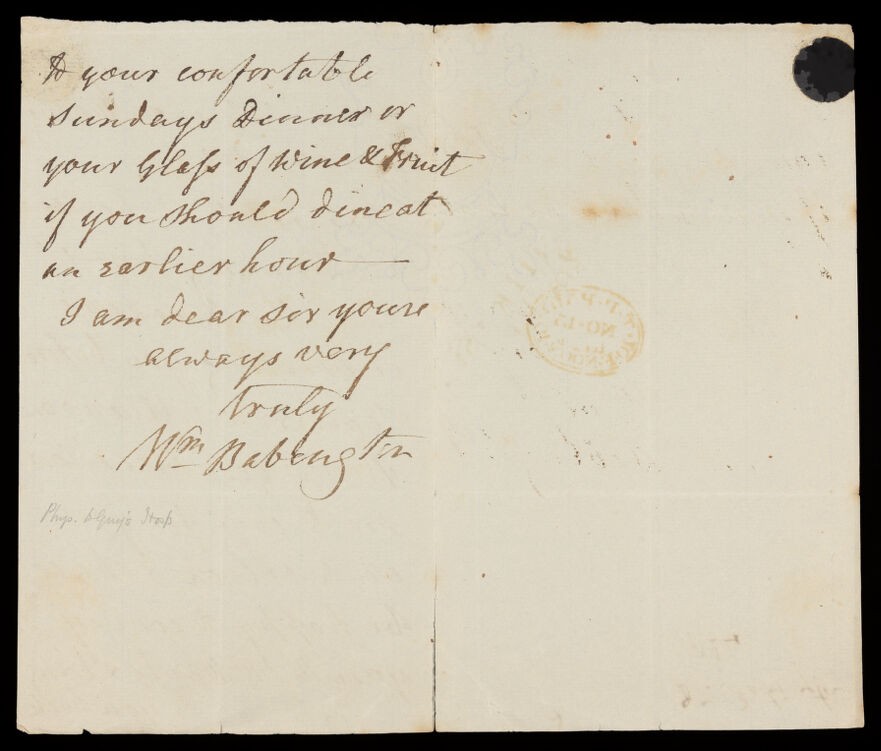 to your confortable
Sundays Dinner or
your Glass of Wine & Fruit
if you should dine at
an earlier hour —
I am dear sir yours
always very
truly
Wm Babington
Phys. to Guy's Hosp